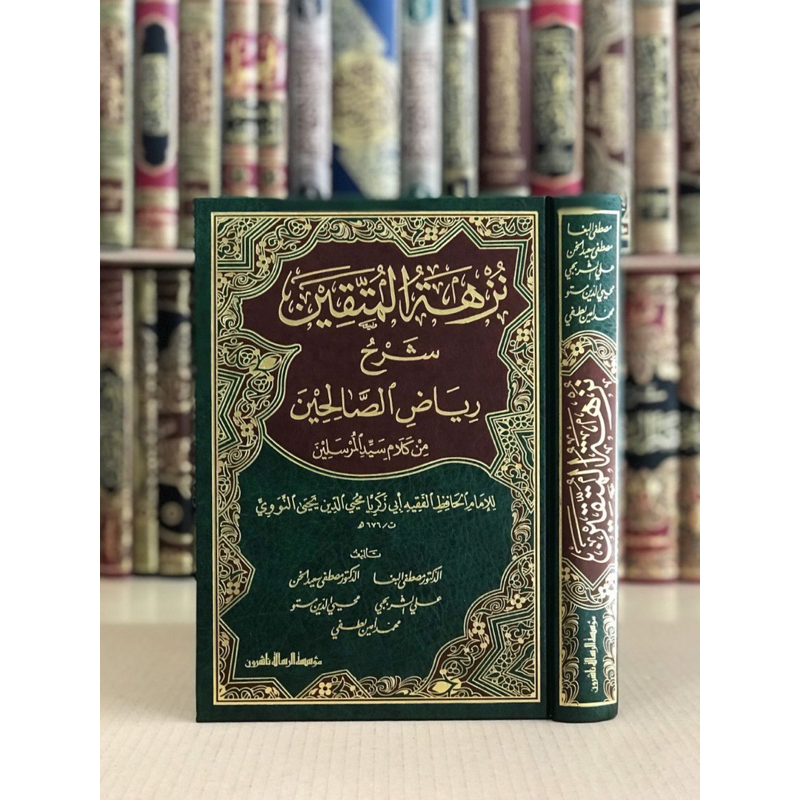 نُزْهَةُ المُتَّقِينَ
شَرْحُ
رِيَاضِ الصَّالِحِيْنَ
مِنْ كَلَامِ سَيِّدِ المُرْسَلِيْنَ
لِلإِمَامِ الحَافِظِ الفَقِيهِ أَبِي زَكَرِيَّا مُحْيِي الدِّينِ يَحْيَىٰ النَّوَوِيِّ
ت ٦٧٦هـ
تأليف
الدكتور مصطفى البغا الدكتور مصطفى سعيد الخن
علي الشربجي محيي الدين مستو
محمد أمين لطفي
مؤسسة الرسالة ناشرون
مصطفى البغا
مصطفى سعيد الخن
علي الشربجي
محيي الدين مستو
محمد أمين لطفي
نُزْهَةُ المُتَّقِينَ
مؤسسة الرسالة ناشرون